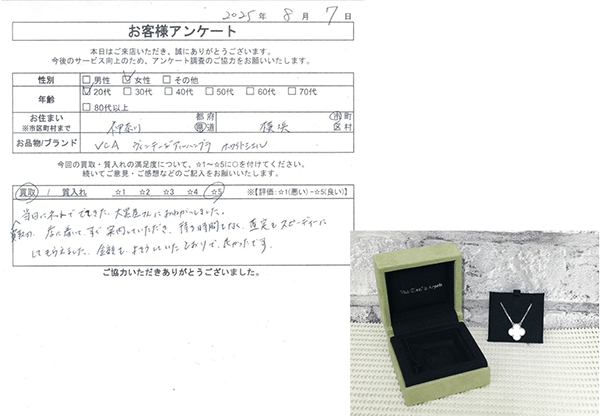 2025年 8月 7日
お客様アンケート
本日はご来店いただき、誠にありがとうございます。
今後のサービス向上のため、アンケート調査のご協力をお願いいたします。
性別 □男性 ☑女性 □その他
年齢 ☑20代 □30代 □40代 □50代 □60代 □70代
□80代以上
お住まい
※市区町村まで 神奈川 都府県道 横浜 市町区村
お品物/ブランド VCA ヴィンテージアルハンブラ ホワイトシェル
今回の買取・質入れの満足度について、☆1~☆5に○を付けてください。
続いてご意見・ご感想などのご記入をお願いいたします。
買取 / 質入れ ☆1 ☆2 ☆3 ☆4 ☆5 ※【評価:☆1(悪い)-☆5(良い)】
当日にネットで
大黒屋さんに
店に着いて、すぐ案内していただき、待つ時間もなく、査定もスピーディーに
してもらえました。金額も、よそうしていたとおりで、良かったです。
ご協力いただきありがとうございました。
Van Cleef & Arpels